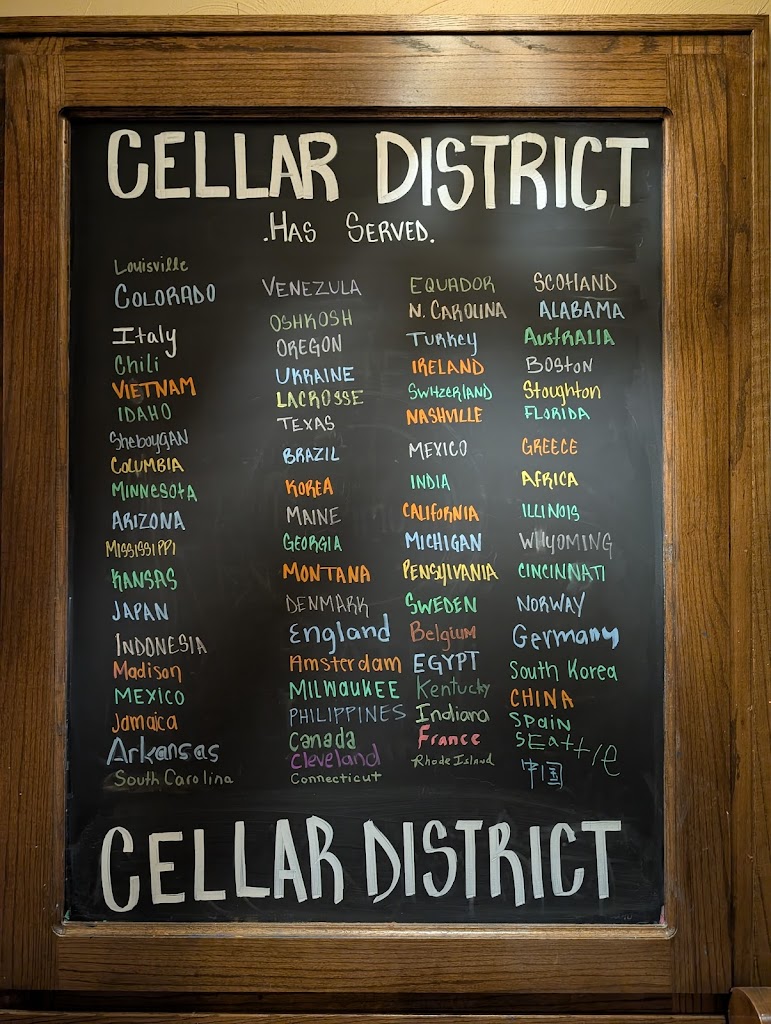 CELLAR DISTRICT
.HAS SERVED.
Louisville
COLORADO
Italy
Chili
VIETNAM
IDAHO
SheboyGAN
COLUMBIA
MINNESOtA
ARIZONA
MISSISSIPPI
KANSAS
JAPAN
INDONESIA
Madison
MEXICO
Jamaica
Arkansas
South Carolina
VENEZULA
OSHKOSH
OREGON
UKRAINE
LACROSSE
TEXAS
BRAZIL
KOREA
MAINE
GEORGIA
MONTANA
DENMARK
England
Amsterdam
MILWAUKEE
PHILIPPINES
Canada
Cleveland
Connecticut
EQUADOR
N. CAROLINA
TURKEY
IRELAND
SWHZERLAND
NASHVILLE
MEXICO
INDIA
CALIFORNIA
MICHIGAN
PENSYLVANIA
SWEDEN
Belgium
EGYPT
Kentucky
Indiana
France
Rhode Island
SCOTLAND
ALABAMA
AustRALIA
BOSTON
Stoughton
FLORIDA
GREECE
AFRICA
ILLINOIS
WHYOMING
CINCINNATI
NORWAY
Germany
South Korea
CHINA
SPAIN
SEattle
中国
CELLAR DISTRICT